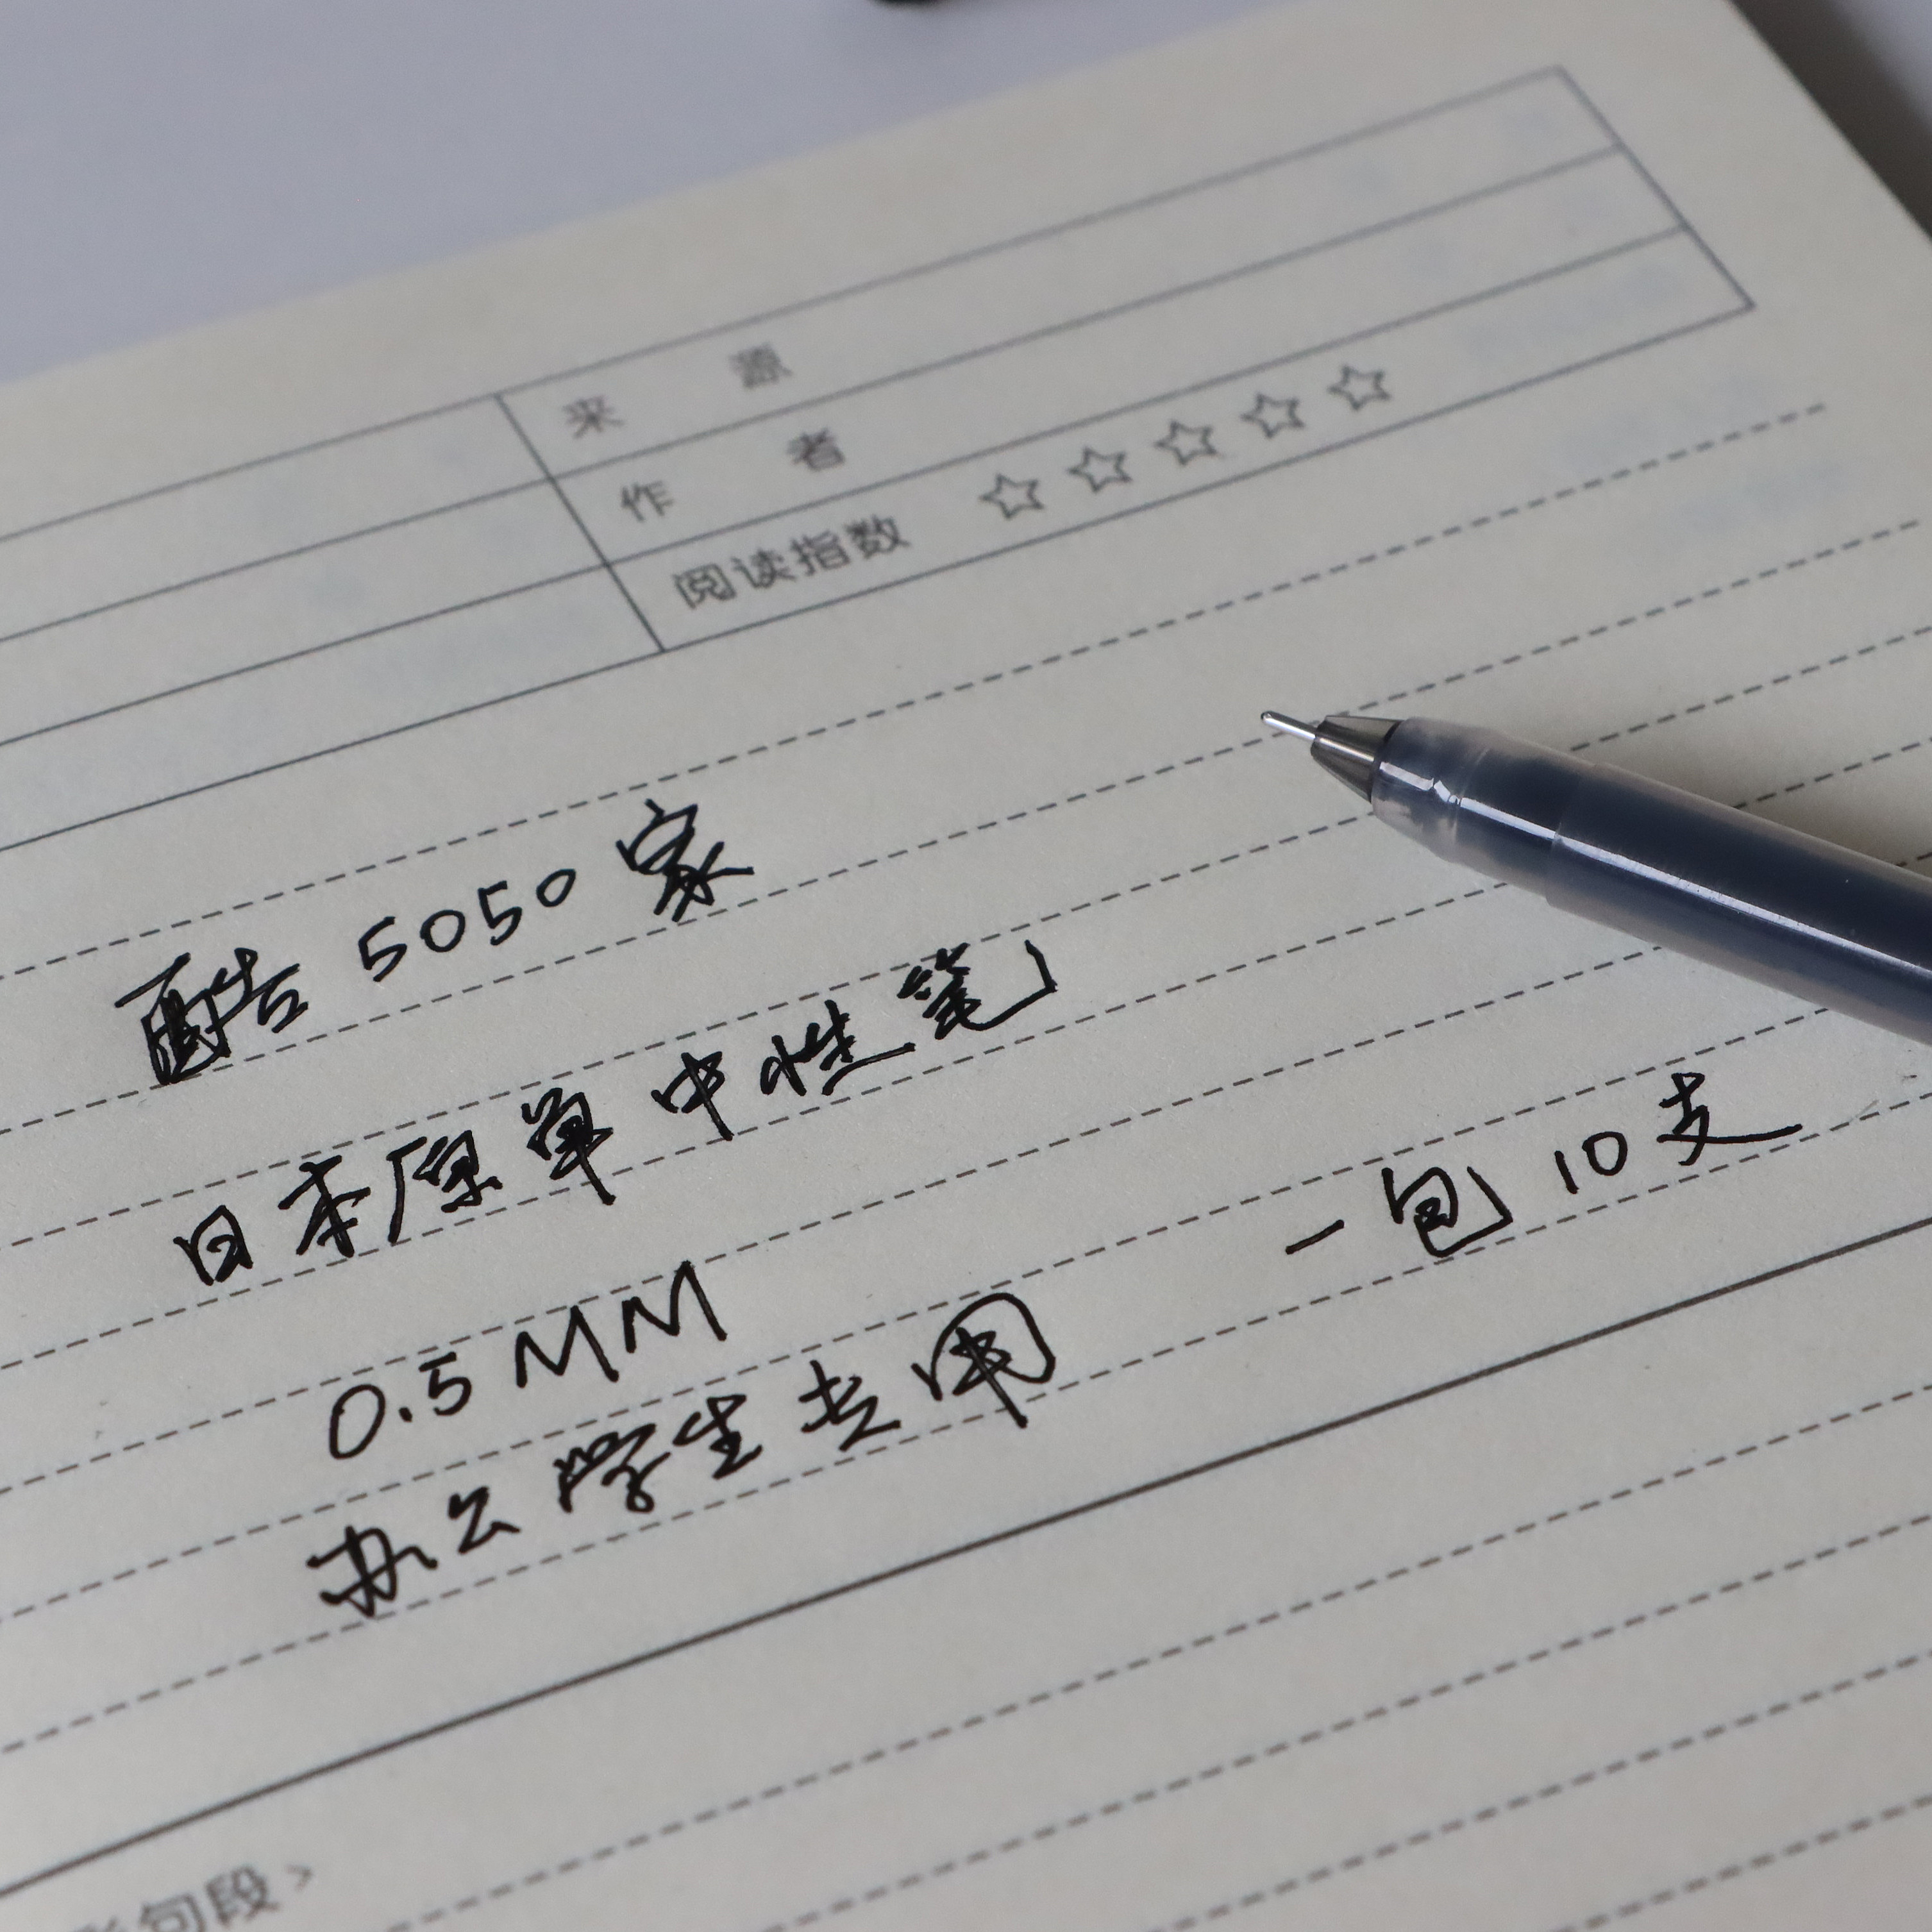 来源
作者
阅读指数 ☆☆☆☆☆
酷5050家
日本原单中性笔
0.5MM
一包10支
办公学生专用
句段>